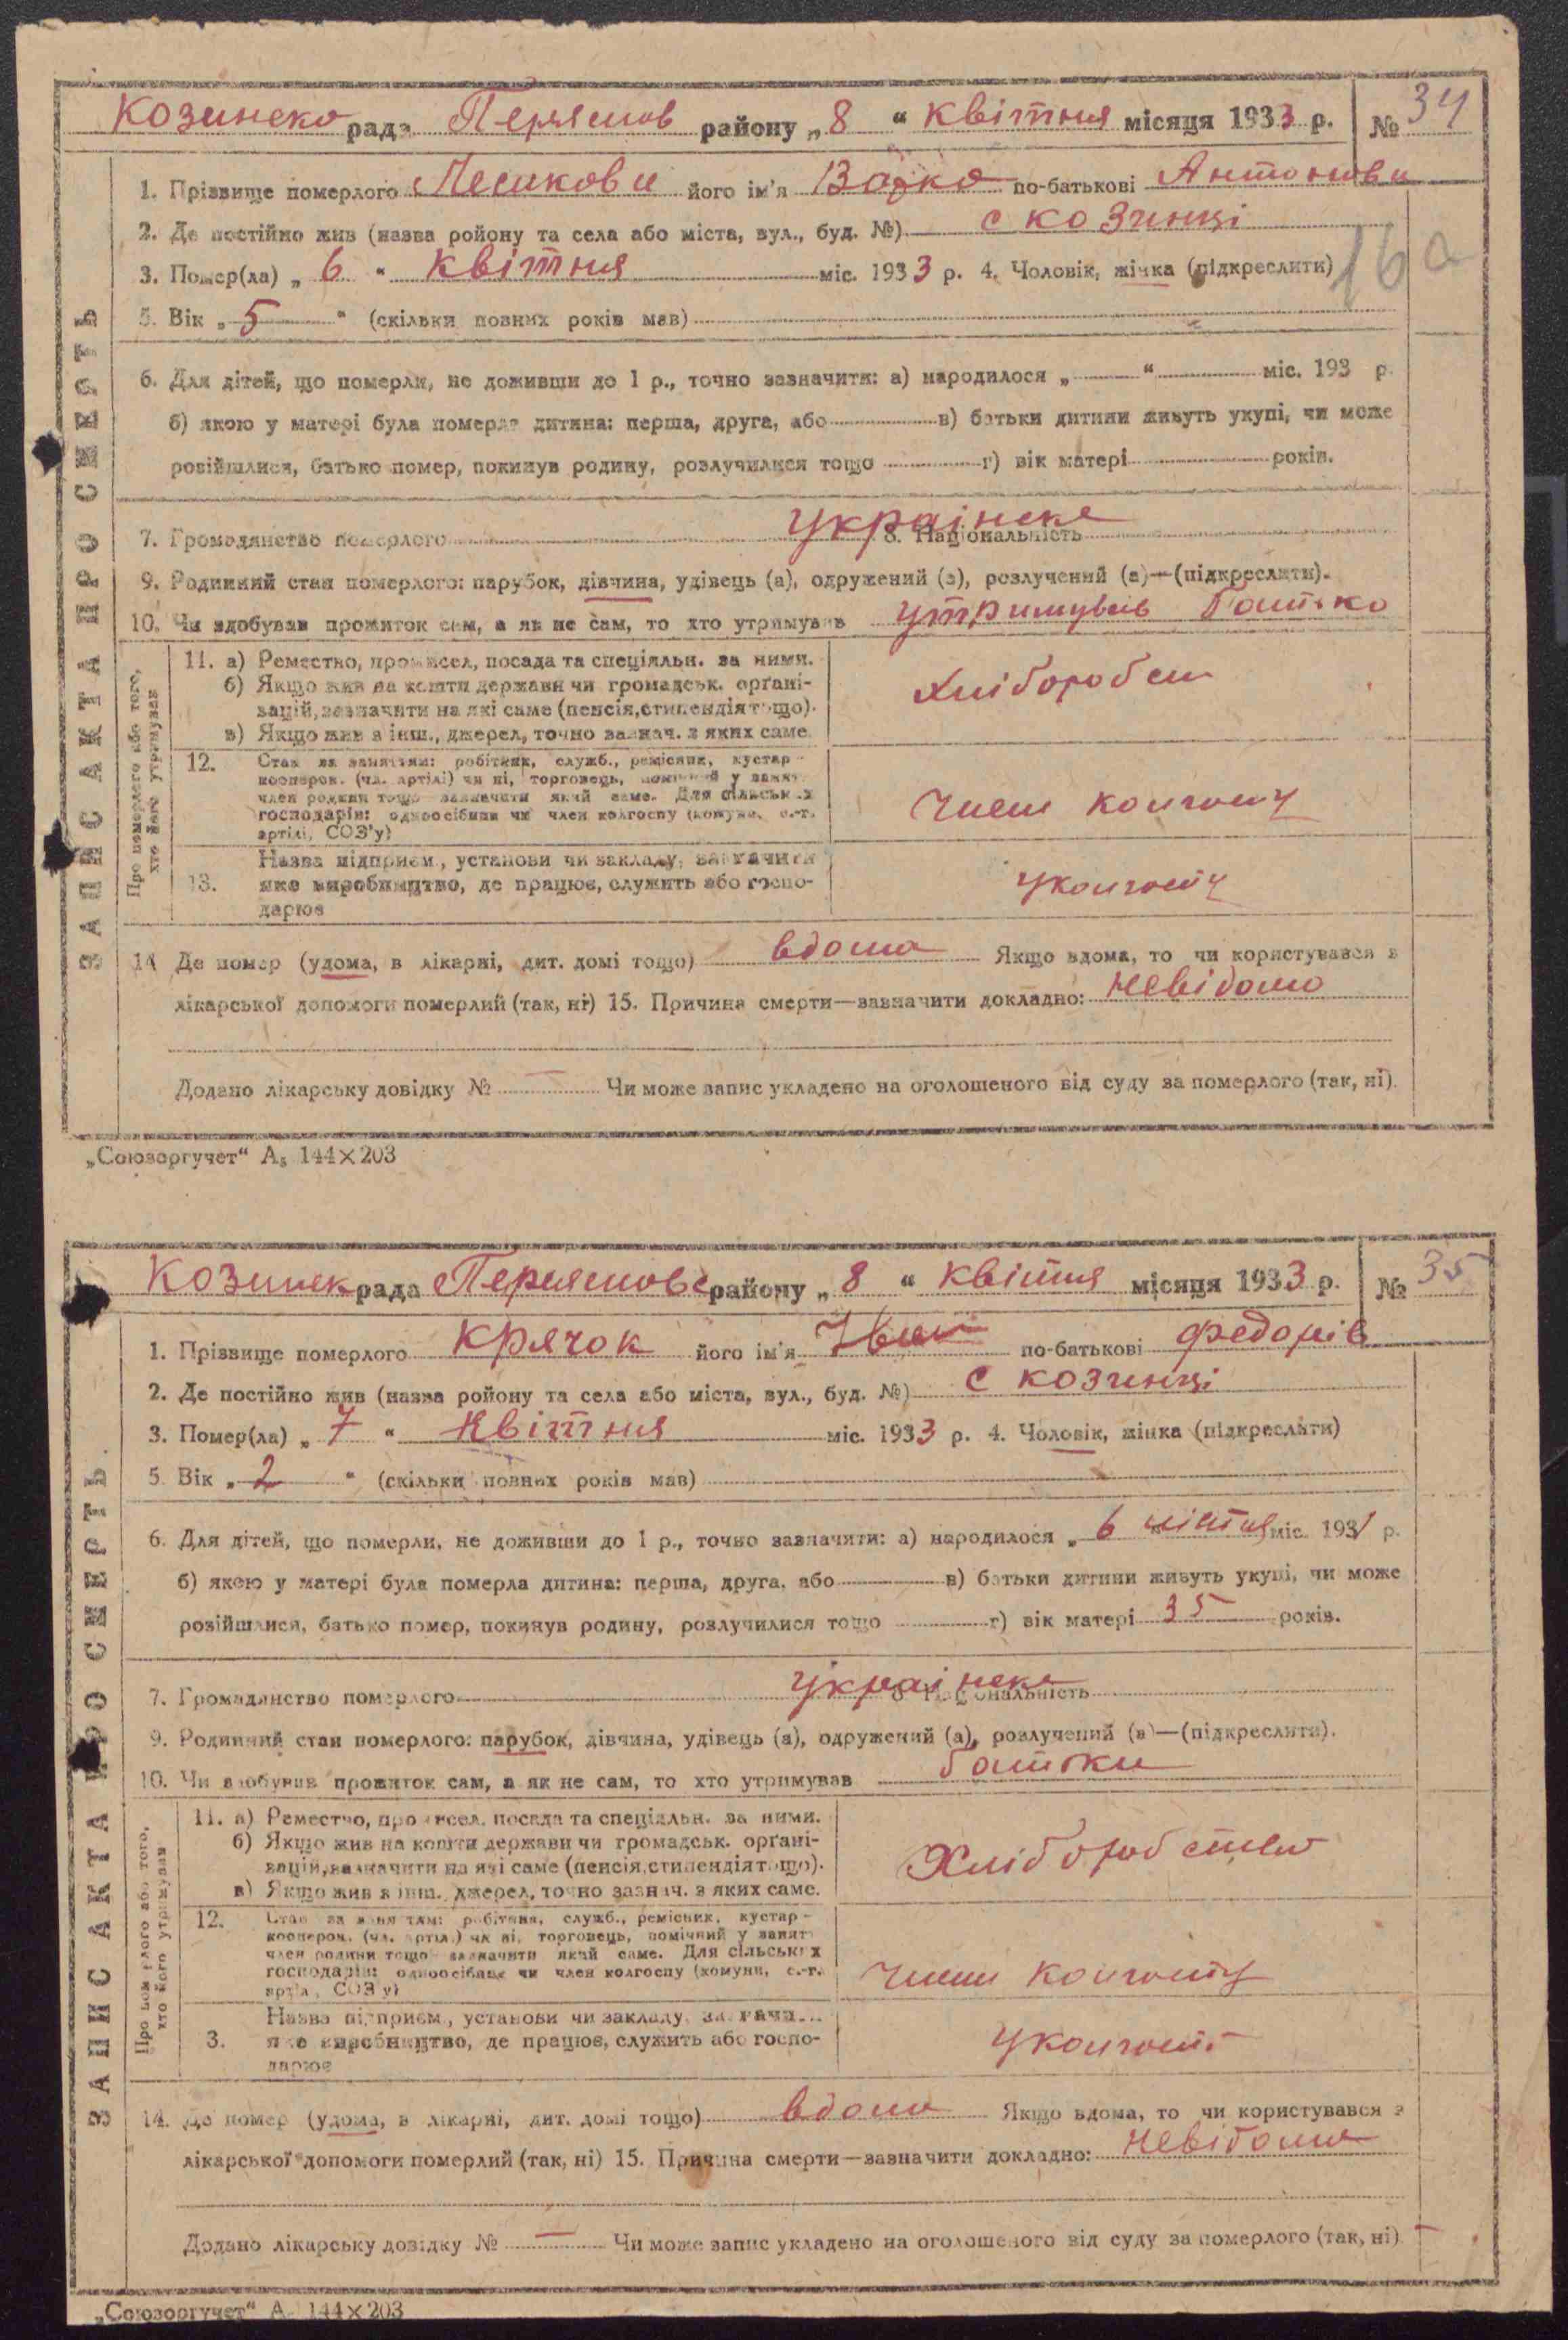 Козинско рада Переяслов району „8“ Квітня місяця 1933 р. № 34
1. Прізвище померлого Лесикови його ім'я по-батькові Антонови
2. Де постійно жив (назва ройону та села або міста, вул., буд. №) с Козинці
3. Помер(ла) „6“ Квітня міс. 1933 р. 4. Чоловік, жінка (підкреслити)
16а
5. Вік „5“ (скільки повних років мав)
6. Для дітей, що померли, не доживши до 1 р., точно зазначити: а) народилося „ “ міс. 193 р.
б) якою у матері була померла дитина: перша, друга, або в) батьки дитини живуть укупі, чи може
розійшлися, батько помер, покинув родину, розлучилися тощо г) вік матері років.
7. Громадянство померлого українске 8. Національність
9. Родинний стан померлого: парубок, дівчина, удівець (а), одружений (а), розлучений (а)—(підкреслити).
10. Чи здобував прожиток сам, а як не сам, то хто утримував утримував батько
ЗАПИС АКТА ПРО СМЕРТЬ
Про померлого або того, хто його утримував
11. а) Ремество, промисел, посада та спеціяльн. за ними.
б) Якщо жив на кошти держави чи громадськ. орґані-
зацій, зазначити на які саме (пенсія, стипендія тощо).
в) Якщо жив з інш., джерел, точно зазнач. з яких саме.
Хлібороб
12. Стан за заняттям: робітник, служб., ремісник, кустар-
кооперов. (чл. артілі) чи ні, торговець, помічний у занят.
член родини тощо зазначити який саме. Для сільських
господарів: одноосібник чи член колгоспу (комуни, с.-г.
артілі, СОЗ'у)
Член колгоспу
Назва підприєм., установи чи закладу, зазначити
13. яке виробництво, де працює, служить або госпо-
дарює
у колгоспу
14. Де помер (удома, в лікарні, дит. домі тощо) вдома Якщо вдома, то чи користувався з
лікарської допомоги померлий (так, ні) 15. Причина смерти—зазначити докладно: невідомо
Додано лікарську довідку № — Чи може запис укладено на оголошеного від суду за померлого (так, ні).
„Союзоргучет“ А₅ 144×203
Козинск рада Переяслове району „8“ Квітня місяця 1933 р. № 35
1. Прізвище померлого Крячок його ім'я Іван по-батькові Федорів
2. Де постійно жив (назва ройону та села або міста, вул., буд. №) с Козинці
3. Помер(ла) „7“ Квітня міс. 1933 р. 4. Чоловік, жінка (підкреслити)
5. Вік „2“ (скільки повних років мав)
6. Для дітей, що померли, не доживши до 1 р., точно зазначити: а) народилося „6 міс. 1931 р.
б) якою у матері була померла дитина: перша, друга, або в) батьки дитини живуть укупі, чи може
розійшлися, батько помер, покинув родину, розлучилися тощо г) вік матері 35 років.
7. Громадянство померлого українске 8. Національність
9. Родинний стан померлого: парубок, дівчина, удівець (а), одружений (а), розлучений (а)—(підкреслити).
10. Чи здобував прожиток сам, а як не сам, то хто утримував батьки
ЗАПИС АКТА ПРО СМЕРТЬ
Про померлого або того, хто його утримував
11. а) Ремество, промисел, посада та спеціяльн. за ними.
б) Якщо жив на кошти держави чи громадськ. орґані-
зацій, зазначити на які саме (пенсія, стипендія тощо).
в) Якщо жив з інш., джерел, точно зазнач. з яких саме.
Хліборобство
12. Стан за заняттям: робітник, служб., ремісник, кустар-
кооперов. (чл. артілі) чи ні, торговець, помічний у занят.
член родини тощо зазначити який саме. Для сільських
господарів: одноосібник чи член колгоспу (комуни, с.-г.
артілі, СОЗ'у)
член колгоспу
Назва підприєм., установи чи закладу, зазначи...
3. яке виробництво, де працює, служить або госпо-
дарює
у колгоспі
14. Де помер (удома, в лікарні, дит. домі тощо) вдома Якщо вдома, то чи користувався з
лікарської допомоги померлий (так, ні) 15. Причина смерти—зазначити докладно: невідомо
Додано лікарську довідку № — Чи може запис укладено на оголошеного від суду за померлого (так, ні)
„Союзоргучет“ А 144×203